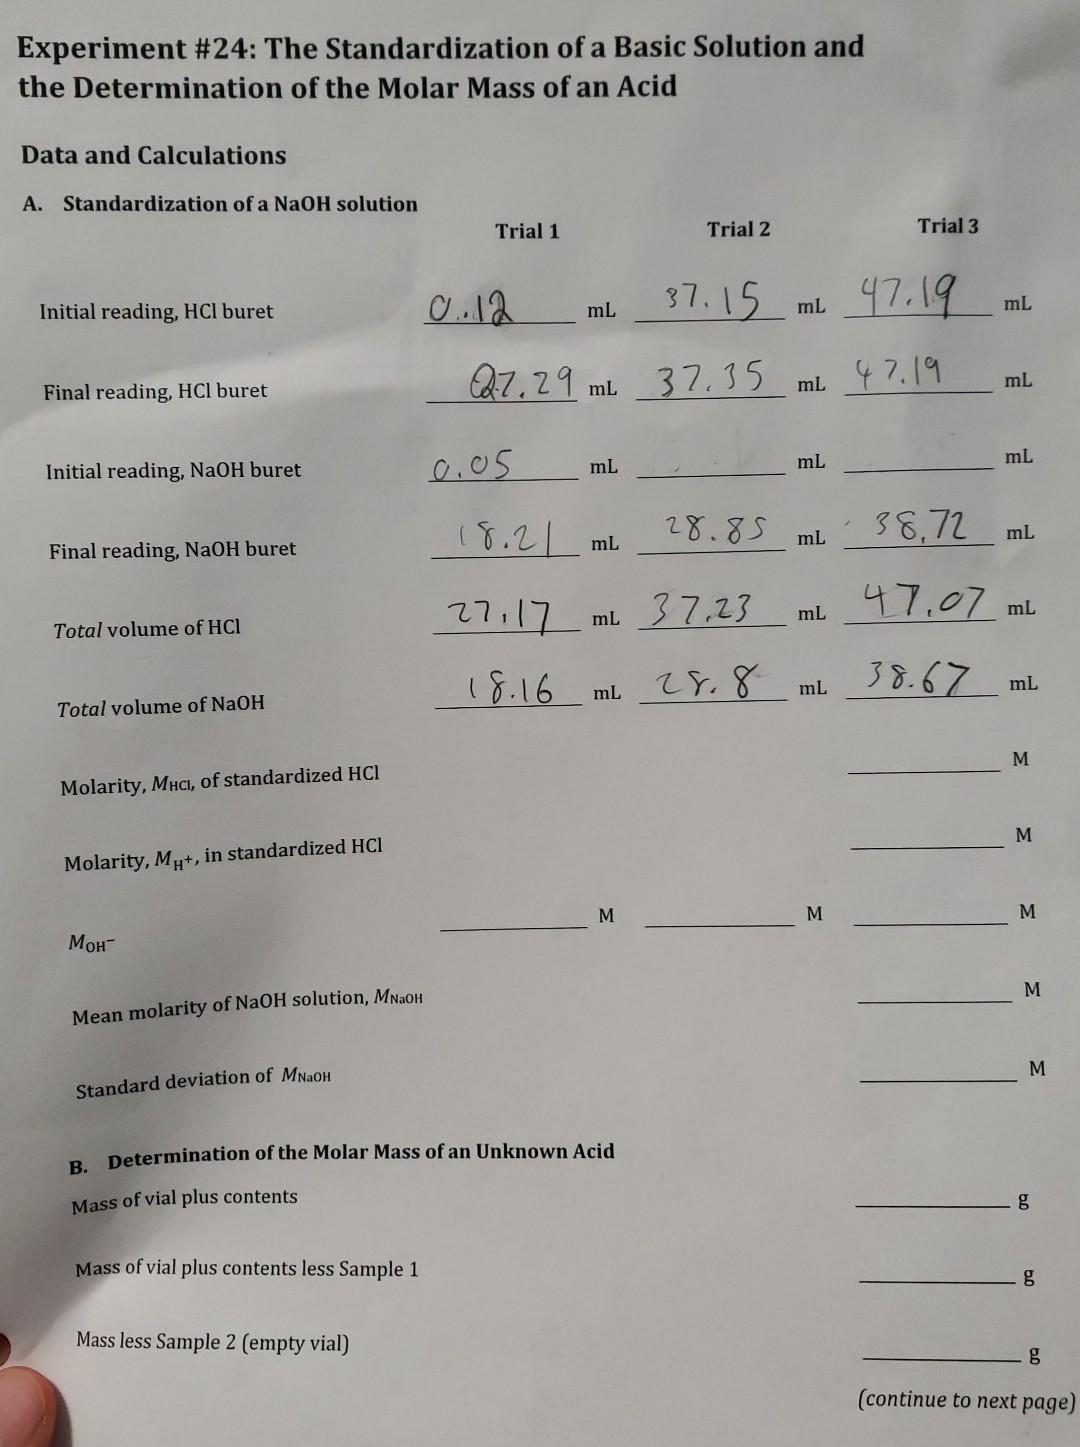 Experiment #24: The Standardization of a Basic Solution and
the Determination of the Molar Mass of an Acid
Data and Calculations
A. Standardization of a NaOH solution
Trial 1 Trial 2 Trial 3
Initial reading, HCl buret 0.12 mL 37.15 mL 47.19 mL
Final reading, HCl buret 27.29 mL 37.35 mL 47.19 mL
Initial reading, NaOH buret 0.05 mL mL mL
Final reading, NaOH buret 18.21 mL 28.85 mL 38.72 mL
Total volume of HCl 27.17 mL 37.23 mL 47.07 mL
Total volume of NaOH 18.16 mL 28.8 mL 38.67 mL
Molarity, MHCl, of standardized HCl M
Molarity, MH+, in standardized HCl M
MOH− M M M
Mean molarity of NaOH solution, MNaOH M
Standard deviation of MNaOH M
B. Determination of the Molar Mass of an Unknown Acid
Mass of vial plus contents g
Mass of vial plus contents less Sample 1 g
Mass less Sample 2 (empty vial) g
(continue to next page)